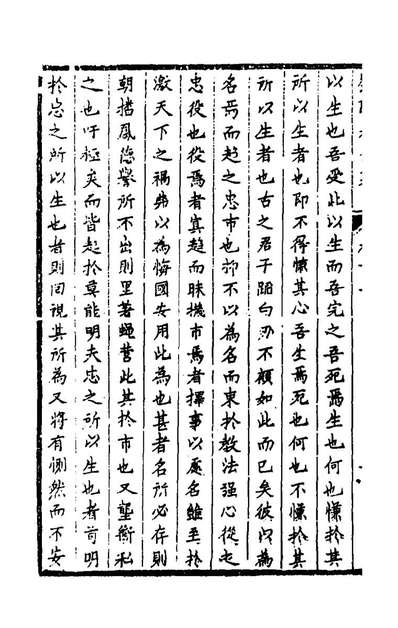 以生也吾受此以生而吾完之吾死焉生也何也慊於其
所以生者也即不得慊其心吾生焉死也何也不慊於其
所以生者也古之君子蹈白刃不顧如此而已矣彼以為
名焉而趨之忠市也抑不以為名而束於教法強心從之
忠役也役焉者寘趨而昧機市焉者擇事以處名雖至於
激天下之禍弗以為悔國安用此為也甚者名所必存則
朝搢鳳隐鱟所不出則里著蠅营此其於市也又壟斷私
之也吁極矣而皆起於莫能明夫忠之所以生也者苟明
於忠之所以生也者則回視其所為又將有惻然而不安